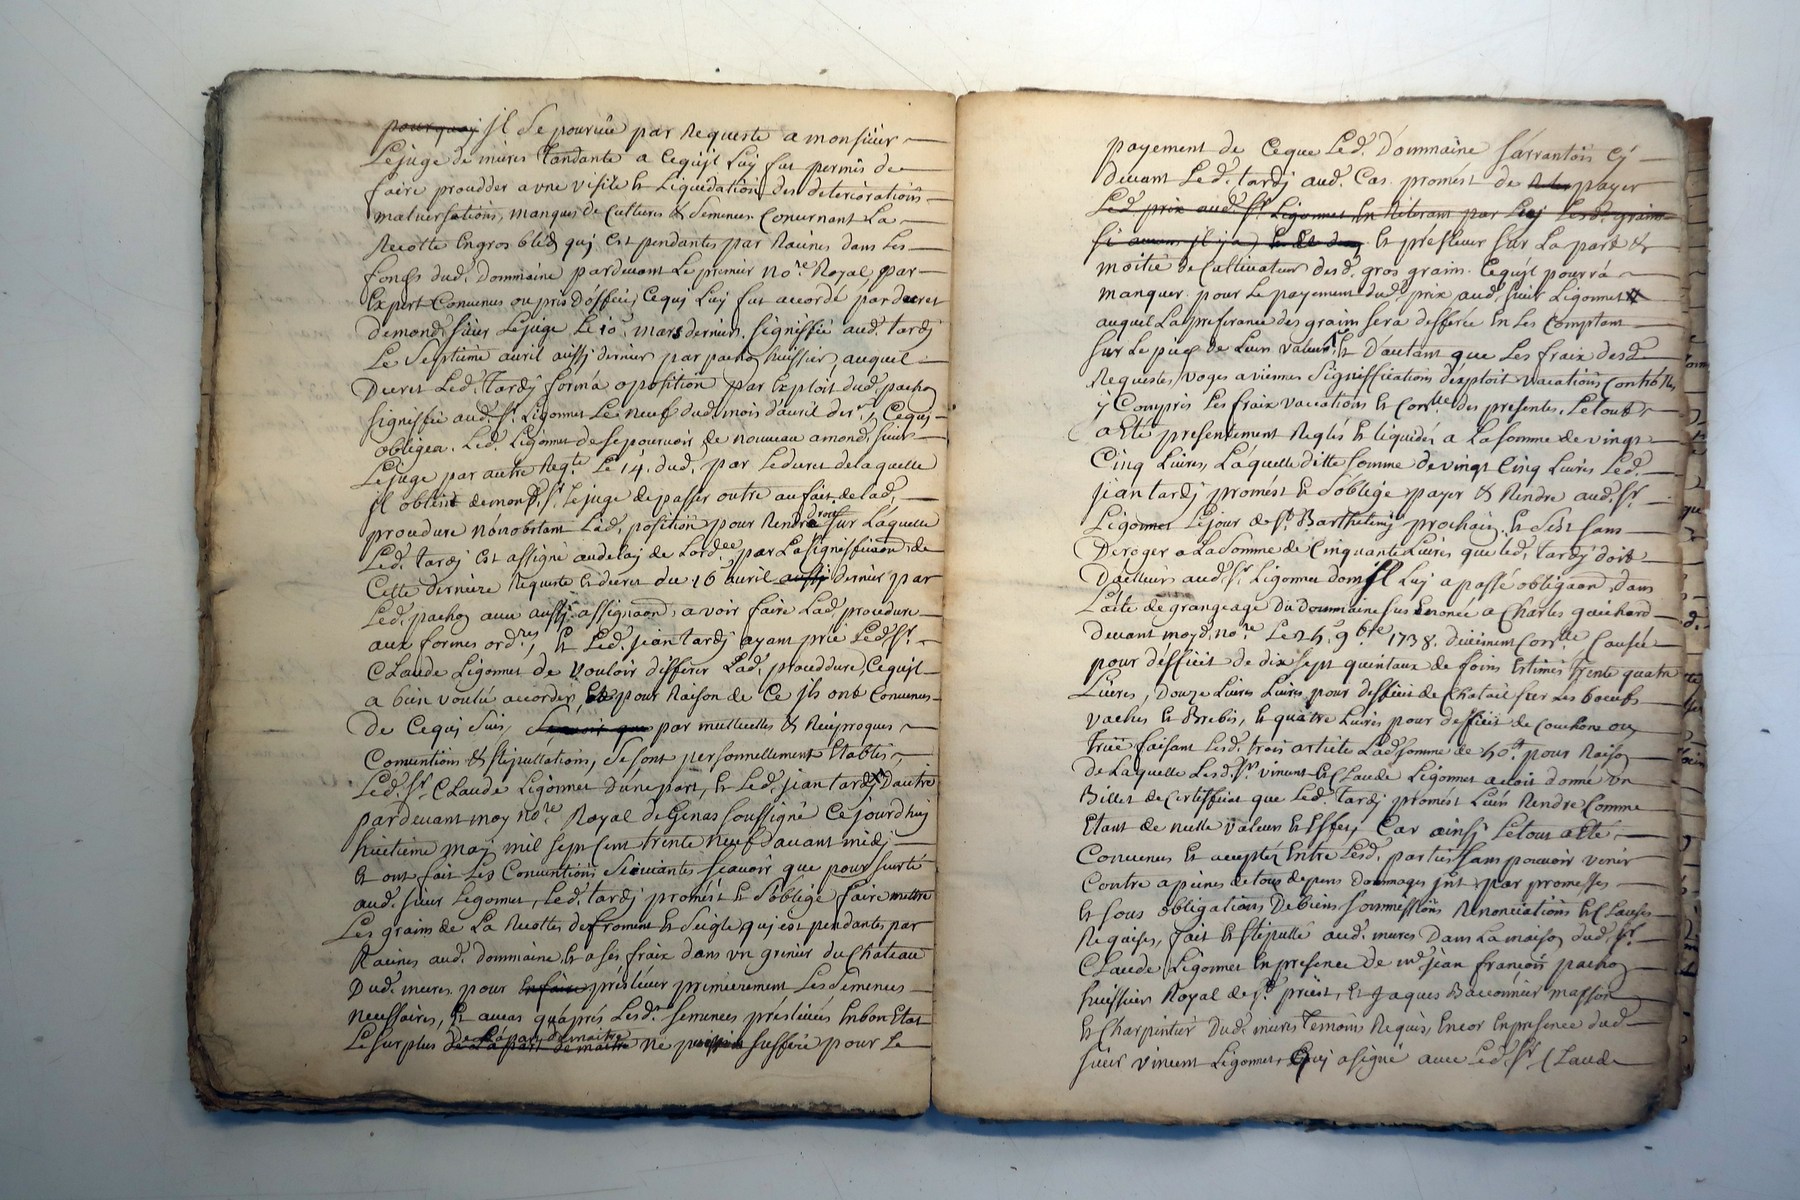 pourquoy jl se pourvüe par Requeste a monsieur
Lejuge de mures Tandante a cequjl Luj fut permis de
faire proudder a vne visite & Liquidation des deteriorations
malversations, manques de Cultures & Semences Concernant La
Recotte En gros bléds quj Est pendantes par Racines dans Les
fonds dud. Dommaine pardevant Le premier no.re Royal par
Expert Convenus ou pris d'office, Cequj Luj fut accordé par decret
demond. sieur Lejuge Le 10.e mars dernier, signiffié aud. tardj
Le Septieme avril aussj dernier par pachoz huissier, auquel
Decret Led. Tardj forma oposition par Exploit dud. pachoz
signiffié aud. Sr. Ligonnet Le neuf dud. mois d'avril der.r, Cequj
obligea Led. Ligonnet de sepourvoir de nouveau a mond. sieur
Lejuge par autre Req.te Le 14. dud. par Ledecret delaquelle
jl obtint de mond. Sr. Lejuge de passer outre au fait de lad.
proudure nonobstant Lad. position pour Rendre droit sur Laquelle
Led. tardj Est assigné audelaj de Lord.ee par La signiffication de
Cette derniere Requeste & decret du 16 avril aussj dernier par
Led. pachoz avec aussj assignaon, a voir faire Lad. procedure
aux formes ord.res, Et Led. jean tardj ayant prié Led. Sr.
CLaude Ligonnet de vouloir differer Lad. proceddure, Cequjl
a bien voulu accorder, & pour Raison de Ce jls ont Convenus
De Cequj suis, Scavoir que par mutuelles & Reciproques
Conventions & stipullations, se sont personnellement Etablis,
Led. Sr. CLaude Ligonnet d'une part, & Led. jean tardj D'autre
pardevant moy no.re Royal de Genas soussigné Cejourdhuj
huitieme maj mil sept Cent trente neuf davant midj
Et ont fait Les Conventions Suivantes scavoir que pour surté
aud. sieur Legonnet, Led. tardj promést & S'oblige faire mettre
Les grains de La Recottes de froment & Seigle quj est pendantes par
Racines aud. dommaine, & a ses fraix dans vn grenier du Chateau
Dud. mures pour En faire préslever premierement Les Semences
necessaires, Et aucas qu'aprés Lesd. Semences préslevées En bon Etat
Le surplus De La part de maitre De La part de maitre ne puisse suffire pour Le
payement de Ceque Led. Dommaine sarrantois Cÿ
Devant Led. tardj aud. Cas promést de payer
Led. prix aud. Sr. Ligonnet En Retirant par Luj Lesd. grains
si aucun jl ya Et préslever sur La part &
moitié de Cultivateur desd. gros grains Cequjl pourra
manquer pour Le payement dud. prix aud. sieur Ligonnet
auquel La preferance des grains sera defferée En Les Comptant
sur Le pied de Leur valeur, Et D'autant que Les fraix desd.
Requestes, voges a viennes Signiffications d'éxploit vacations Controlle
ÿ Compris Les fraix vacations & Con.lle des presentes, Le tout
a Eté presentement Reglés & Liquidés a La somme de vingt
Cinq Livres, Laquelle ditte somme de vingt Cinq Livres Led.
jean tardj promést & S'oblige payer & Rendre aud. Sr.
Ligonnet Lejour de St. Barthelemy prochain, Et Sest sans
Deroger a La Somme de Cinquante Livres que led. tardj doit
D'ailleurs aud. Sr. Ligonnet dont jL Luj a passé obligaon dans
Lacte de grangeage du Dommaine sus Enoncé a Charles guichard
Devant moyd. no.re Le 24. 9.bre 1738. Deüement Con.lle Causée
pour defficit de dix sept quintaux de foins Estimés trente quatre
Livres, Douze Livres Livres pour defficit de Chatail sur Les boeufs
vaches & Brebis, Et quatre Livres pour defficit de Couchons ou
truë faisant Lesd. trois article Lad. somme de 50.tt pour Raison
de Laquelle Lesd. Srs. vincent & CLaude Ligonnet avoit donné vn
Billet de Certifficat que Led. tardj promést Leur Rendre Comme
Etant de nulle valeur & Effet, Car ainsj Le tout a Eté
Convenus Et accepter Entre Lesd. parties sans pouvoir venir
Contre a peines de tous depens Dommages jnt. par promesses
& sous obligations De biens soummissions Renonciations & CLauses
Requises, fait & stipullé aud. mures Dans La maison dud. Sr.
CLaude Ligonnet En presence de m.e jean françois pachoz
huissier Royal de St. priest, Et Jaques Baconnier masson
& Charpentier dud. mures temoins Requis, Encor En presence dud.
sieur vincent Ligonnet, Quj a signé avec Led. Sr. CLaude